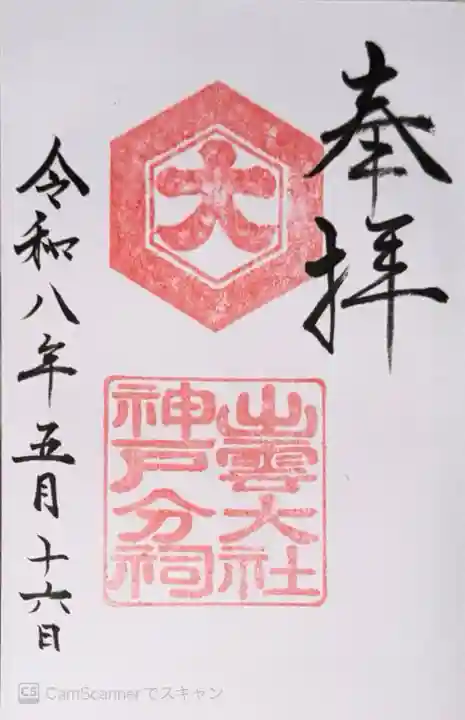 奉拝
大
出雲大社
神戸分祠
令和八年五月十六日
CS CamScannerでスキャン